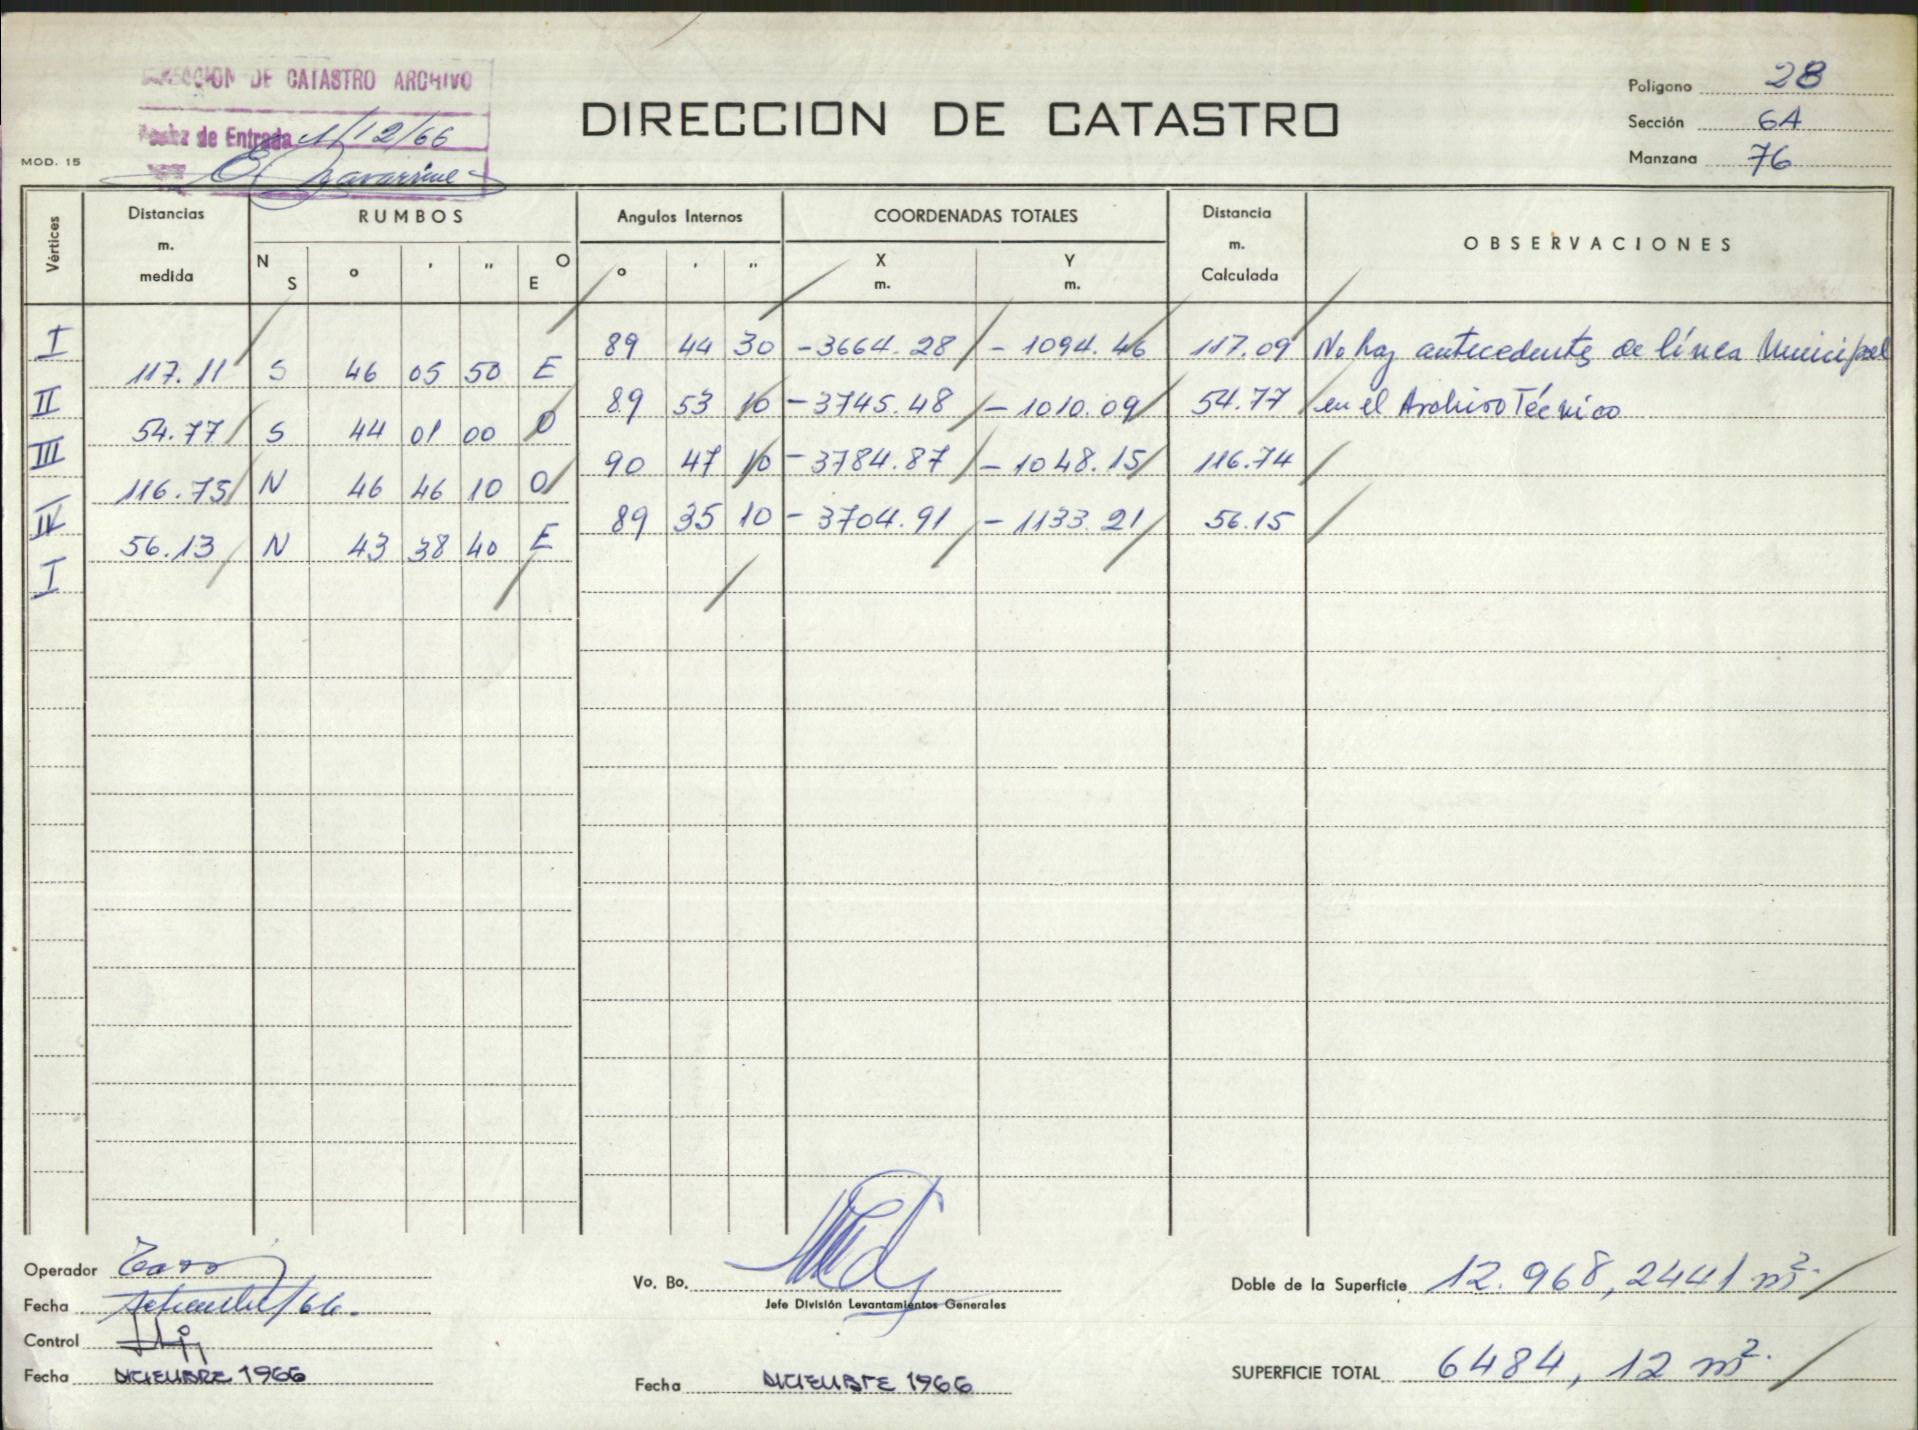 DIRECCION DE CATASTRO ARCHIVO
de Entrada 1/12/66
MOD. 15
DIRECCION DE CATASTRO
Polígono 28
Sección 6A
Manzana 76
Vértices
Distancias m. medida
RUMBOS
N S ° ' " O E
Angulos Internos
° ' "
COORDENADAS TOTALES
X m. Y m.
Distancia m. Calculada
OBSERVACIONES
I 89 44 30 -3664.28 - 1094.46 117.09 No hay antecedentes de línea Municipal
117.11 S 46 05 50 E
II 89 53 10 -3745.48 - 1010.09 54.77 en el Archivo Técnico
54.77 S 44 01 00 O
III 90 47 10 -3784.87 - 1048.15 116.74
116.75 N 46 46 10 O
IV 89 35 10 -3704.91 - 1133.21 56.15
56.13 N 43 38 40 E
I
Operador
Fecha /66.
Control
Fecha DICIEMBRE 1966
Vo. Bo.
Jefe División Levantamientos Generales
Fecha DICIEMBRE 1966
Doble de la Superficie 12.968,2441 m2.
SUPERFICIE TOTAL 6484, 12 m2.